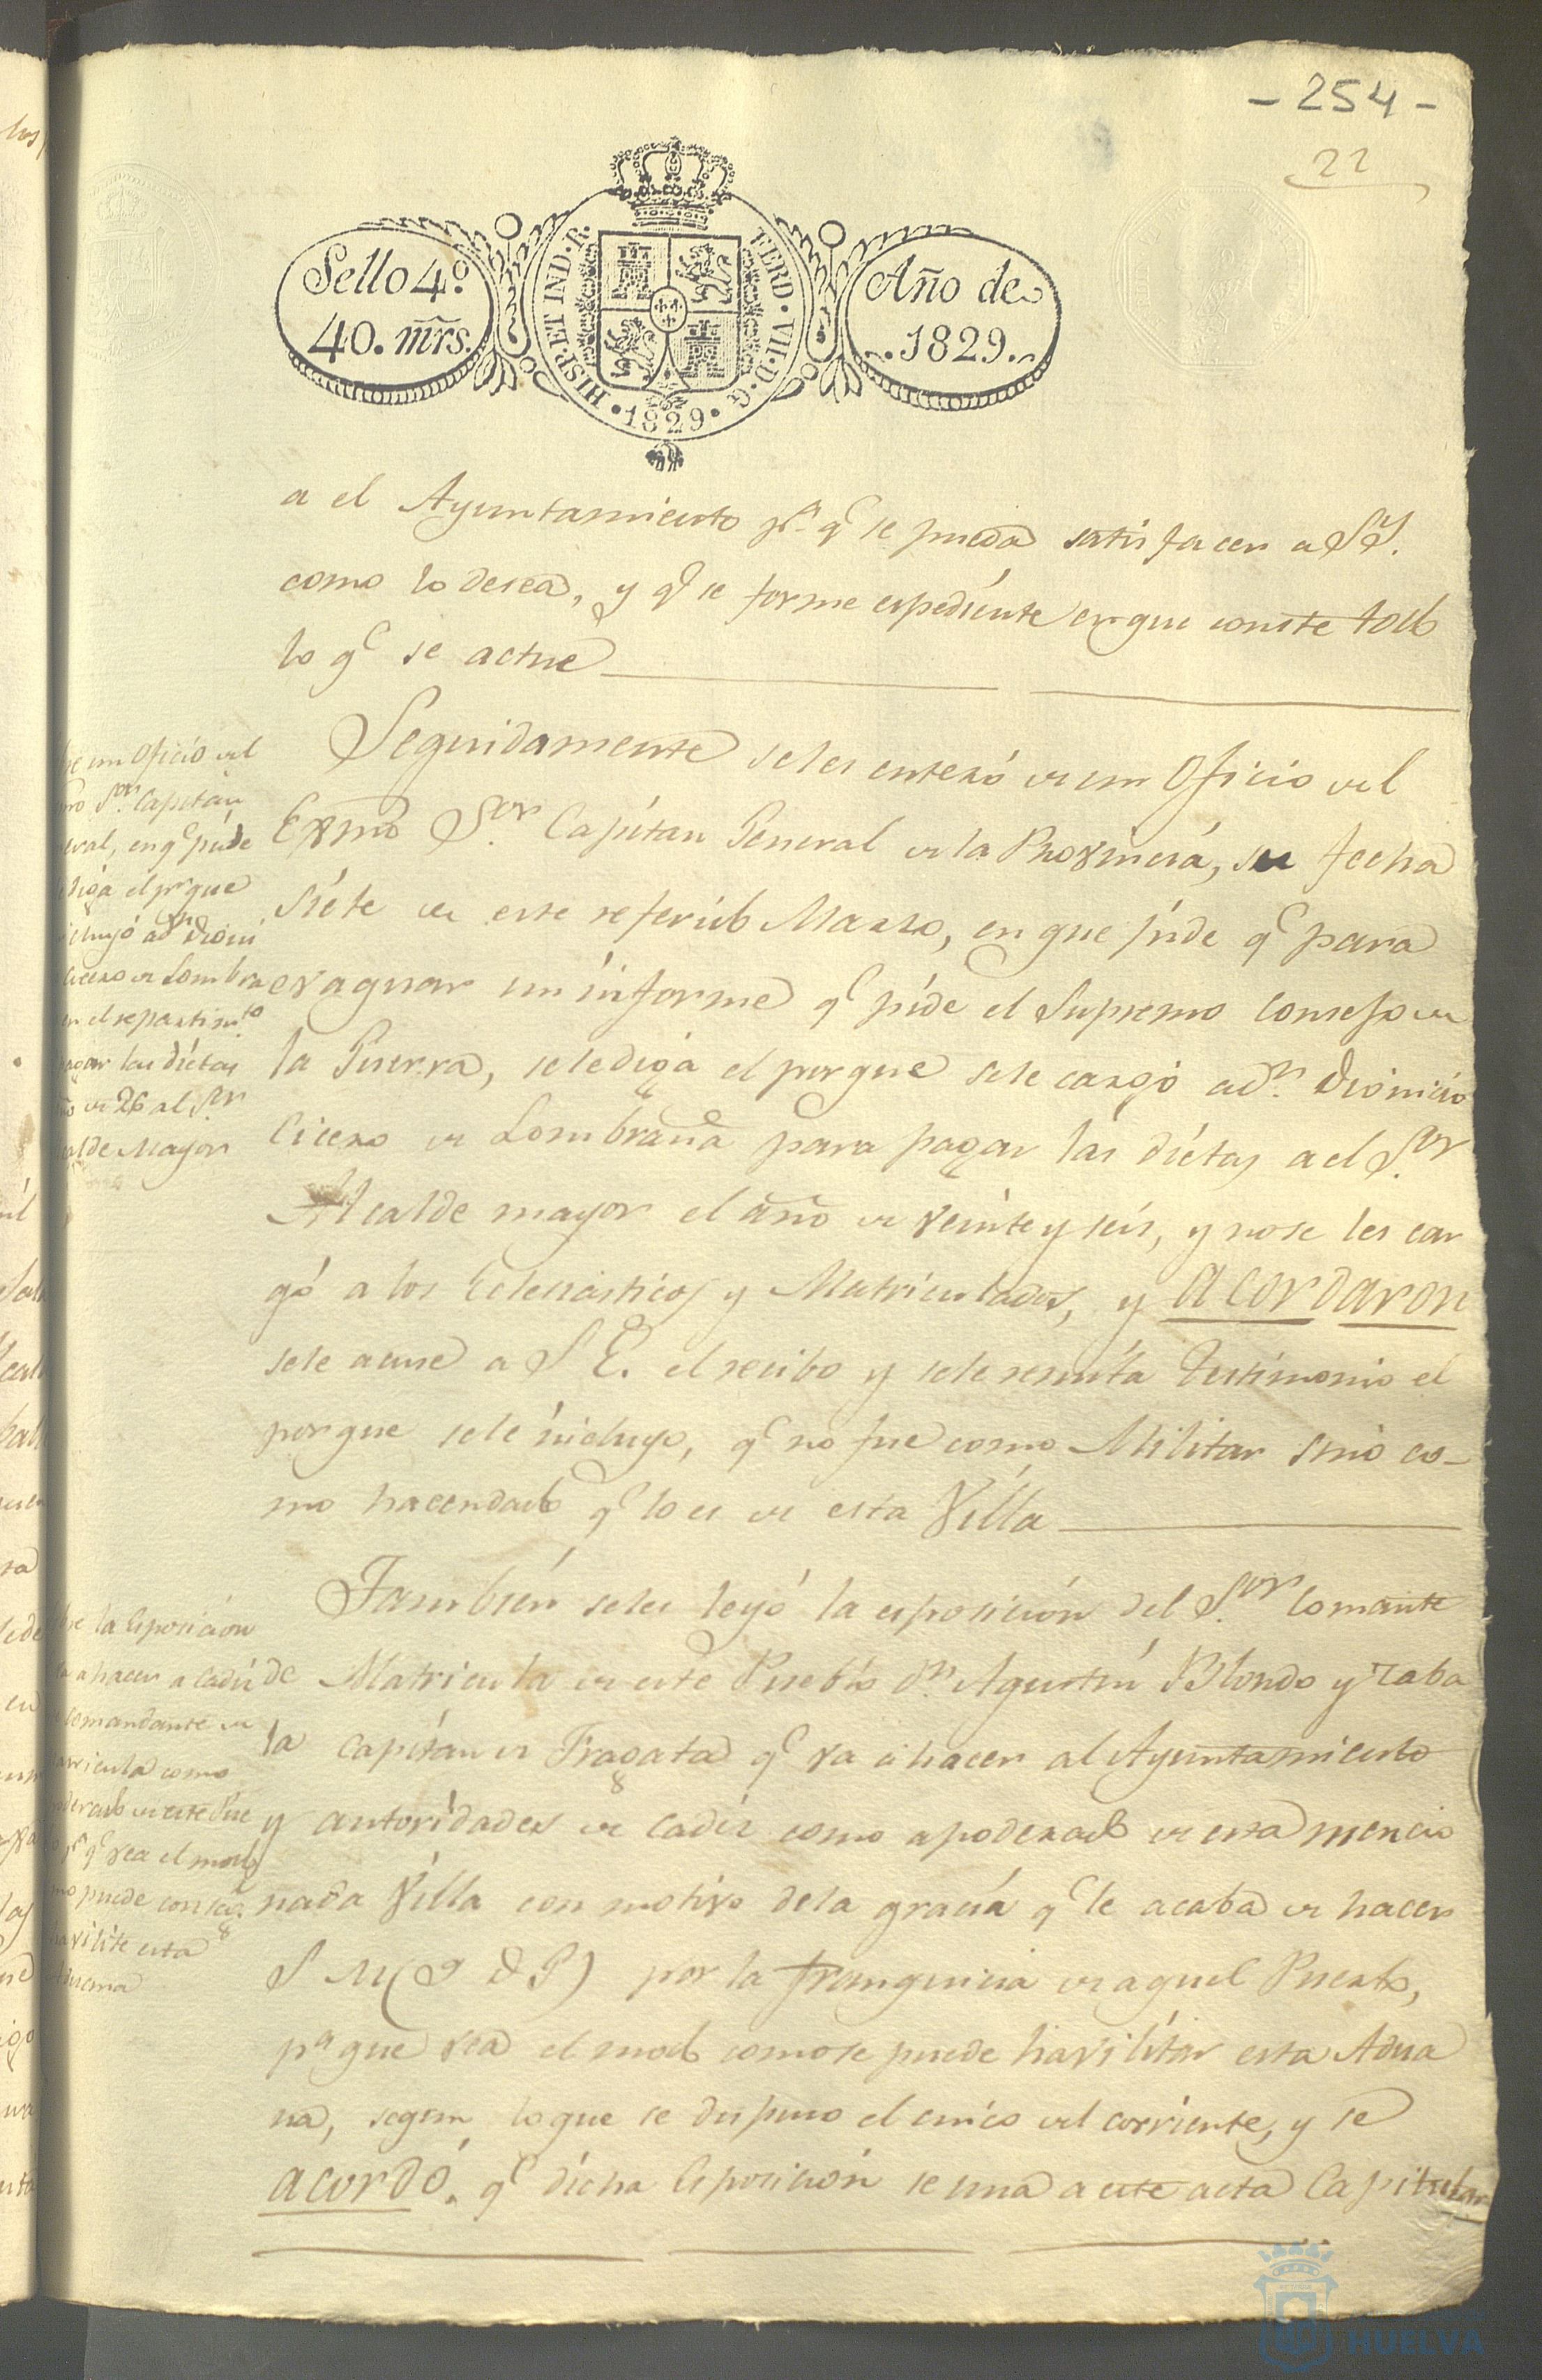 - 254 -
22
Sello 4.º
40. mrs.
HISP. ET IND. R.
FERD. VII. D. G.
• 1829 •
Año de
.1829.
a el Ayuntamiento pª. q^e se pueda satisfacer a S.S.
como lo desea, y q^e se forme espediente en que conste todo
lo q^e se actue
Seguidamente se les enteró de un Oficio del
Exmo S^or. Capitan General de la Provincia, su fecha
siete de este referido Marzo, en que pide q^e para
evaquar un informe q^e pide el Supremo Consejo de
la Guerra, se le diga el por que se le cargó a D^n. Dionicio
Cicero de Lombraña para pagar las dietas a el S^or.
Alcalde mayor el año de veinte y seis, y no se les car
gó a los Eclesiasticos y Matriculados, y acordaron
se le acuse a S E. el recibo y se le remita Testimonio el
por que se le incluyo, q^e no fue como Militar sino co-
mo hacendado q^e lo es de esta Villa
de un Oficio del
S^or. Capitan
eral, en q^e pide
diga el pr que
cluyó a D^n Dioni
cicero de Lombra
en el repartim^to
pagar las dietas
ño de 26 al S^or
alde Mayor
También se les leyó la esposición del S.^or Comante
de Matricula de este Pueblo D^n. Agustin Blondo y Zaba
la Capitan de Fragata q^e va a hacer al Ayuntamiento
y autoridades de Cadiz como apoderado de esta mencio
nada Villa con motivo de la gracia q^e le acaba de hacer
S M (Q D G) por la franquicia de aquel Puerto,
pª que vea el modo como se puede havilitar esta Adua
na, segun lo que se dispuso el cinco del corriente, y se
acordó. q^e dicha Esposición se una a este acta Capitular
la Esposición
a hacer a Cadiz
Comandante de
atricula como
oderado de este Pue
pª q^e vea el modo
mo puede conseg.
havilite esta
Aduana
HUELVA